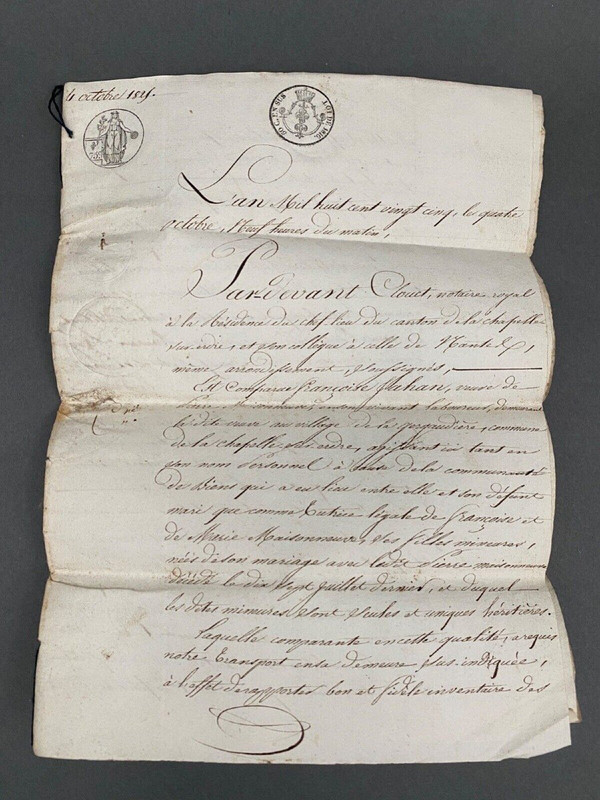 4 octobre 1825.
50 C. EN SUS
LOI DE 1816
L'an Mil huit cent vingt cinq, le quatre
octobre, Neuf heures du matin,
Par-devant Clouët, notaire royal
à la Résidence du chef lieu du canton de la chapelle
sur-erdre, et son collègue à celle de Nantes,
même arrondissement, soussignés,
Est Comparue françoise Jahan, veuve de
Pierre Maisonneuve, en son vivant laboureur, demeurant
la dite veuve au village de la, commune
de la chapelle-sur-erdre, agissant ici tant en
son nom Personnel à cause de la communauté
de Biens qui a eu lieu entre elle et son défunt
mari que comme Tutrice légale de françoise et
de Marie Maisonneuve, ses filles mineures,
nées de son mariage avec led. Pierre maisonneuve
décédé le dix sept Juillet dernier, et duquel
les dites mineures sont seules et uniques héritières.
Laquelle comparante en cette qualité, a requis
notre Transport en sa demeure sus-indiquée,
à l'effet de rapporter bon et fidèle inventaire des